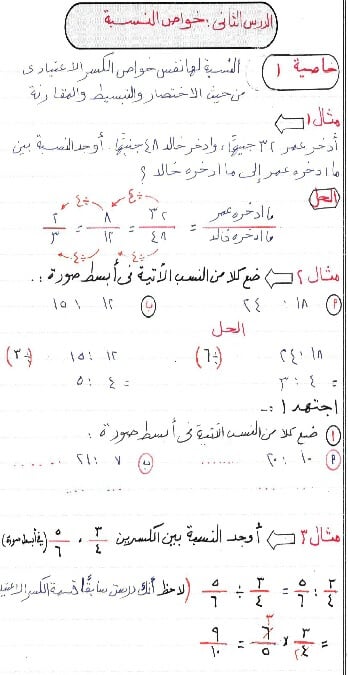 الدرس الثانى : خواص النسبة
خاصية ١ النسبة لها نفس خواص الكسر الاعتيادى
من حيث الاختصار والتبسيط والمقارنة
مثال ١
أدخر عمر ٣٢ جنيهًا، وادخر خالد ٤٨ جنيهًا. أوجد النسبة بين
ما ادخره عمر إلى ما ادخره خالد ؟
الحل
÷٤ ÷٤
ما ادخره عمر / ما ادخره خالد = ٣٢ / ٤٨ = ٨ / ١٢ = ٢ / ٣
÷٤ ÷٤
مثال ٢ ضع كلا من النسب الأتية فى أبسط صورة :.
(٢) ١٨ : ٢٤ (ب) ١٢ : ١٥
الحل
١٨ : ٢٤ (÷٦) ١٢ : ١٥ (÷٣)
= ٣ : ٤ = ٤ : ٥
اجتهد ١ :ـ
(١) ضع كلا من النسب الأتية فى أبسط صورة :
(٢) ١٠ : ٢٠ ........ (ب) ٧ : ٢١ ......
...... ......
مثال ٣ أوجد النسبة بين الكسرين ٣/٤ ، ٥/٦ (فى أبسط صورة)
٣/٤ : ٥/٦ = ٣/٤ ÷ ٥/٦ (لاحظ أنك درست سابقًا قسمة الكسر
= ٣/٤ × ٦/٥ = ٩/١٠